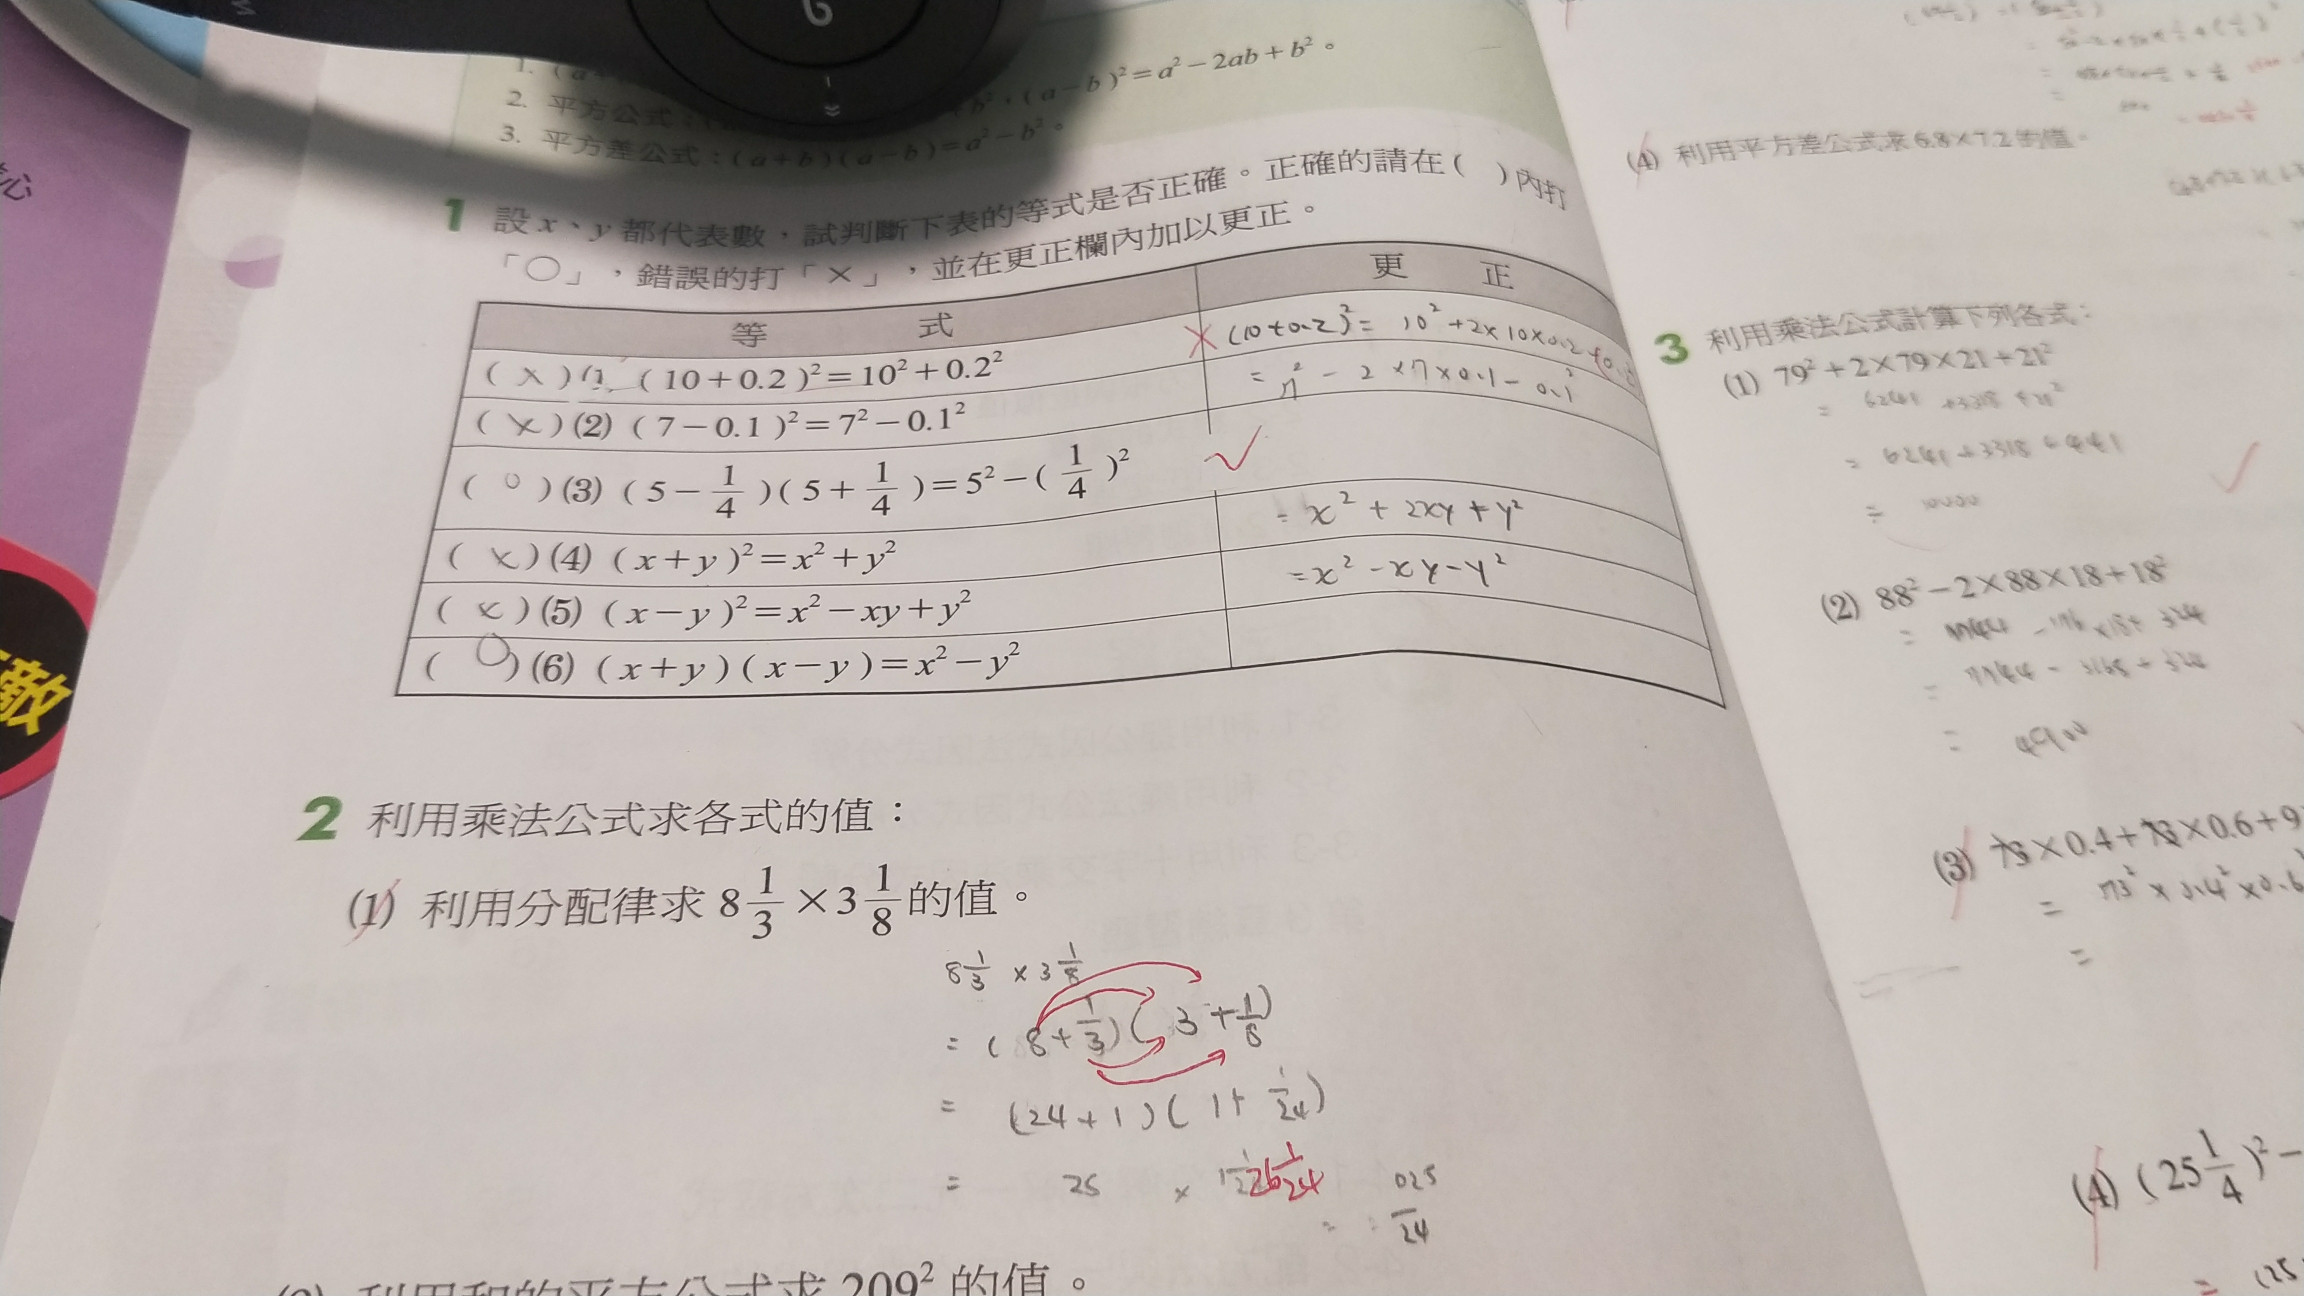 2. 平方公式:
b²,(a-b)²=a²-2ab+b²。
3. 平方差公式:(a+b)(a-b)=a²-b²。
1 設x、y都代表數,試判斷下表的等式是否正確。正確的請在( )內打
「○」,錯誤的打「×」,並在更正欄內加以更正。
等 式 更 正
(×)(1) (10+0.2)²=10²+0.2² (10+0.2)²= 10²+2×10×0.2+0.2
(×)(2) (7-0.1)²=7²-0.1² = 7²-2×7×0.1-0.1²
(○)(3) (5-1/4)(5+1/4)=5²-(1/4)²
(×)(4) (x+y)²=x²+y² = x²+2xy+y²
(×)(5) (x-y)²=x²-xy+y² =x²-xy-y²
(○)(6) (x+y)(x-y)=x²-y²
2 利用乘法公式求各式的值:
(1) 利用分配律求 8 1/3 ×3 1/8 的值。
8 1/3 × 3 1/8
= (8+1/3)(3+1/8)
= (24+1)(1+1/24)
= 25 × 26 1/24
= 025/24
209² 的值。
(4) 利用平方差公式求6.8×7.2的值。
3 利用乘法公式計算下列各式:
(1) 79²+2×79×21+21²
= 6241 +3318 +21²
= 6241+3318+441
= 10000
(2) 88²-2×88×18+18²
= 7744 -176×18+ 324
= 7744 - 3168 + 324
= 4900
(3) 73×0.4+73×0.6+9
= 73²×0.4²×0.6
=
(4) (25 1/4)²-
= (25
敵